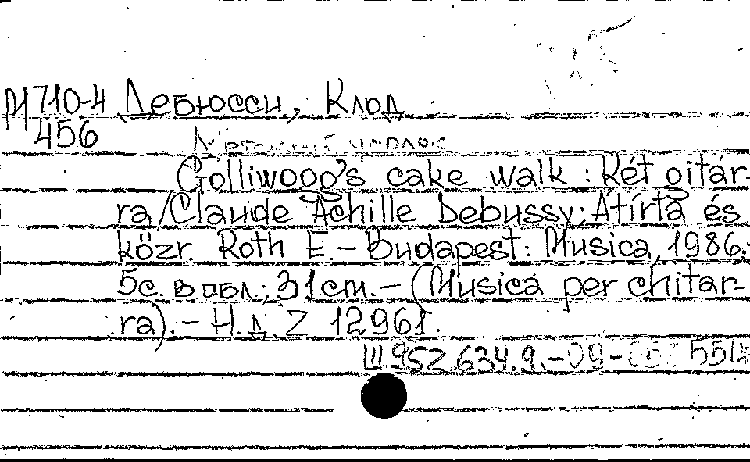 М710-4 Дебюсси, Клод
456
Golliwoog's cake walk : Két gitár-
ra/Claude Achille Debussy; Átírta és
közr. Roth E. – Budapest: Musica, 1986.
5с. в обл.; 31cm. – (Musica per chitar-
ra). – Н.д. Z 12961.